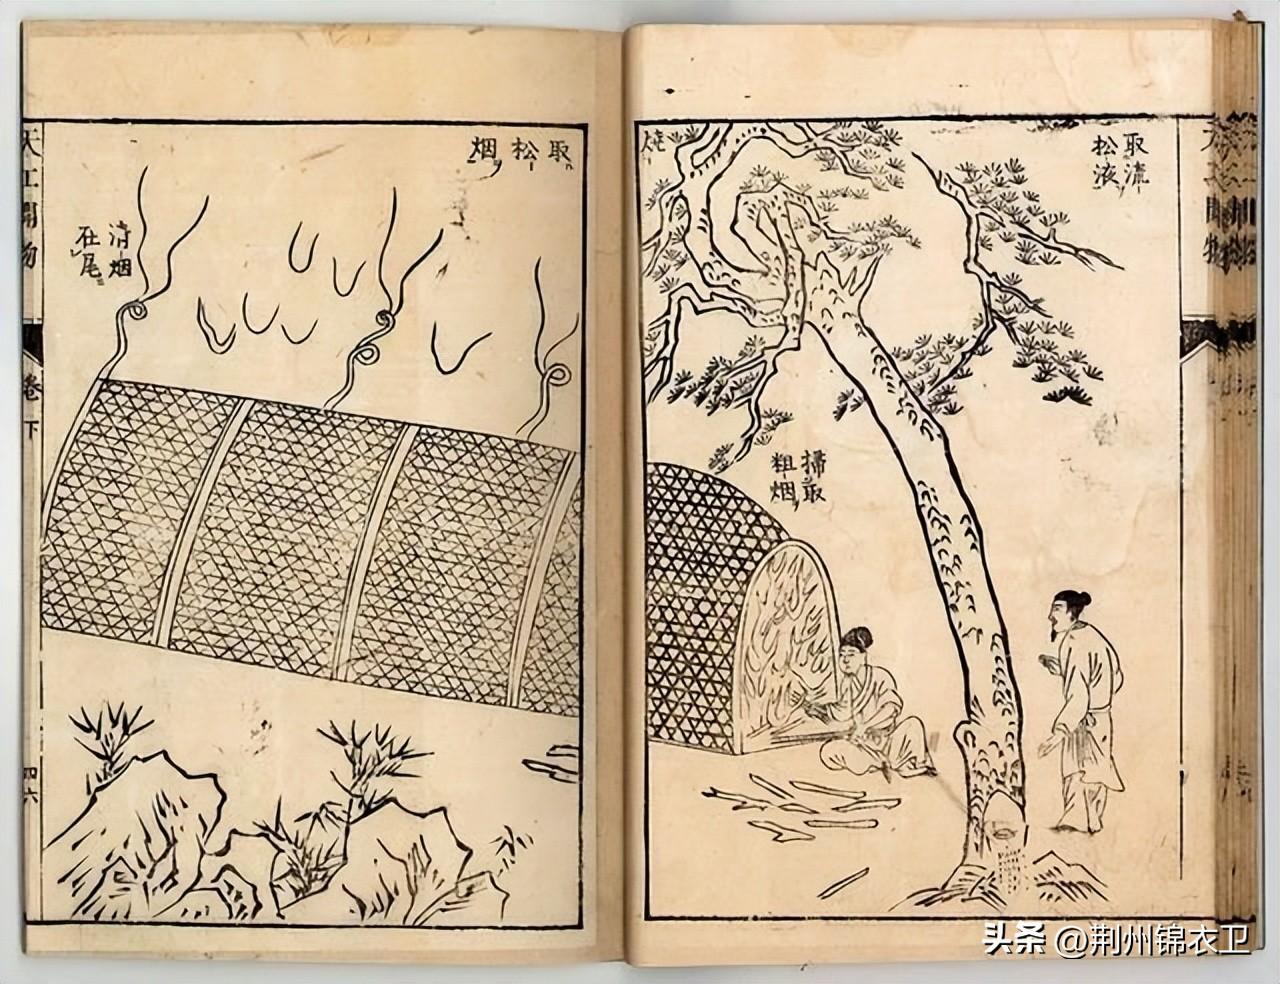 取流
松液
燒
取松烟
掃取
粗烟
清烟
在尾
天工開物
卷下
四六
头条 @荆州锦衣卫